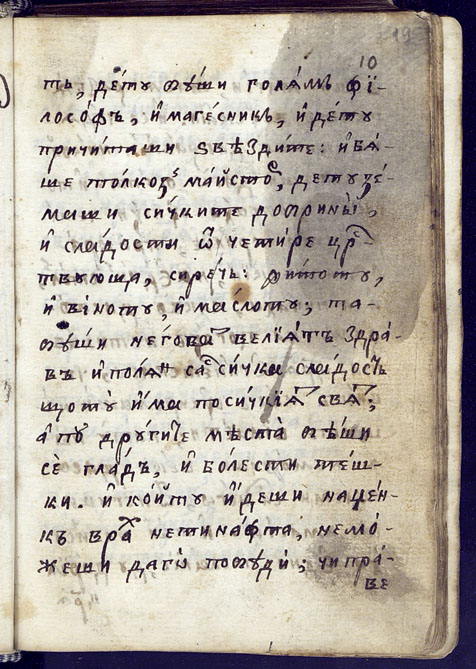 10
тъ, де́ту бѣ́ши голя́мъ фї-
лосо́фъ, и҆ магесникъ, и҆ де́ту
причи́таши ѕвѣзди́те: и҆ бѧ́-
ше то́лкоз майсто, дету ѹзе́-
маши си́чките добрины̀,
и҆ сла́дости ѿ чети́ре цр
твующа, сире́чь:
и҆ ви́ноту, и҆ ма́слоту; та-
бѣ́ши не́гова велїѧтъ здра-
въ и҆ поля са си́чка сла́дость
щоту̀ и҆́ма по си́чкїѧ свѧ;
а҆ по дрꙋ́гите мѣста̀ бѣ́ши
сѐ гла́дъ, и҆ бо́лести те́ш-
ки. и҆ ко́йту и҆́деши на не́н-
къ вра не тина́фта, не мо́-
жеши да го̀ побѣди́; чи пра́-
ве